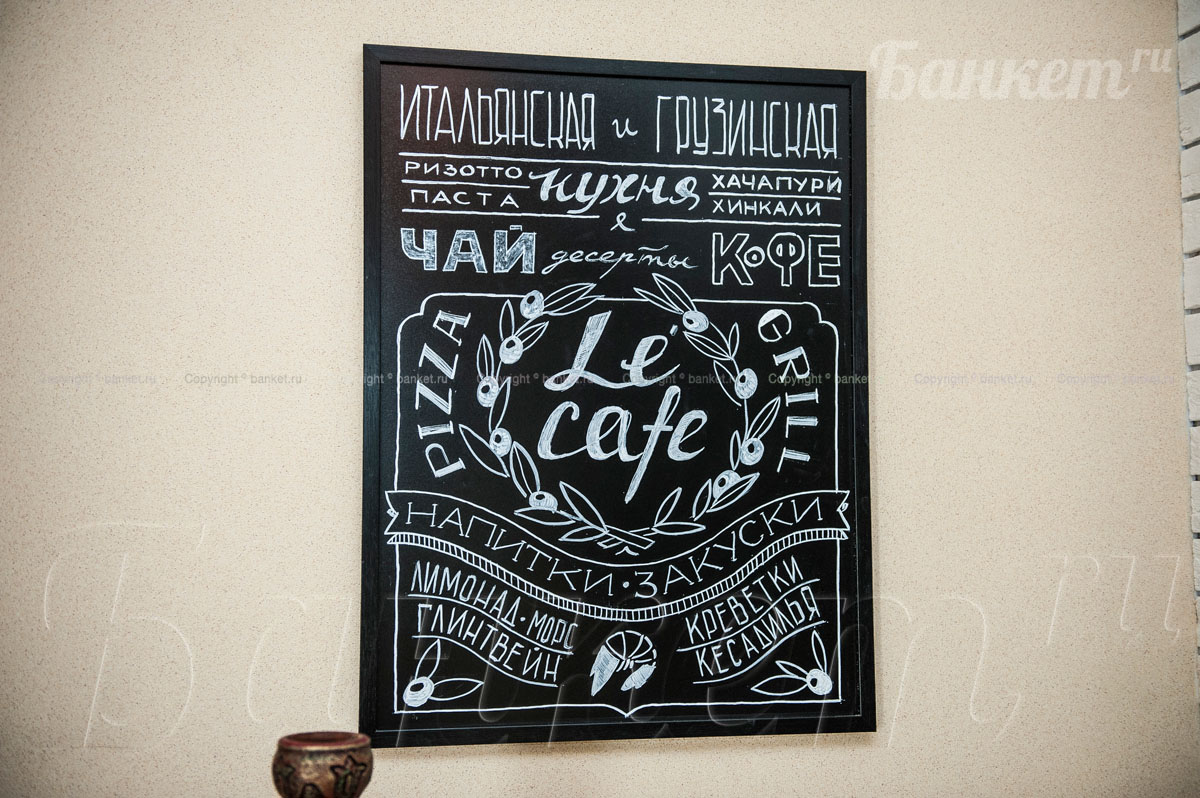 Банкет.ru
ИТАЛЬЯНСКАЯ и ГРУЗИНСКАЯ
РИЗОТТО
ПАСТА
кухня
ХАЧАПУРИ
ХИНКАЛИ
ЧАЙ десерты КОФЕ
PIZZA
Lé
cafe
GRILL
Copyright © banket.ru Copyright © banket.ru Copyright © banket.ru Copyright © banket.ru Copyright © banket.ru Copyright © banket.ru Copyright © banket.ru
НАПИТКИ · ЗАКУСКИ
ЛИМОНАД · МОРС
ГЛИНТВЕЙН
КРЕВЕТКИ
КЕСАДИЛЬЯ
Банкет.ru